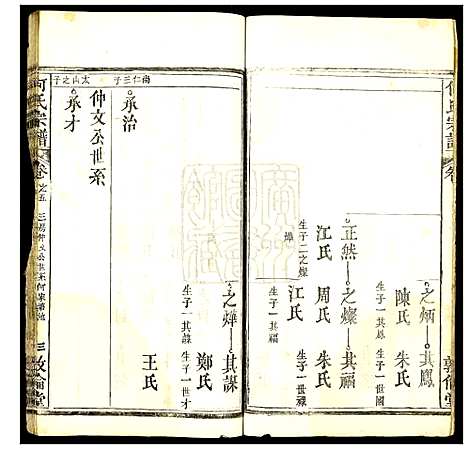 何氏宗譜
卷
敦倫堂
之炳 其鳳
陳氏 朱氏
生子一其鳳
正然 之燦 其福
江氏 周氏 朱氏
生子二之燦
燁
江氏
生子一其福
之燁 其謀
鄭氏
生子一其謀
生子一世才
王氏
太山之子
南仁三子
承治
仲文公世系
承才
何氏宗譜
卷之五
三
敦倫堂